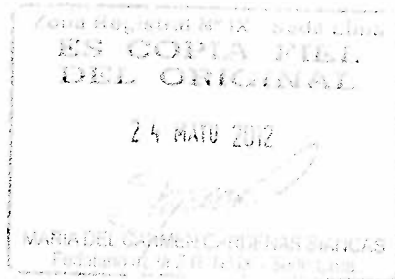 Zona Registral Nº IX Sede Lima
ES COPIA FIEL
DEL ORIGINAL
24 MAYO 2012
MARIA DEL CARMEN CARDENAS